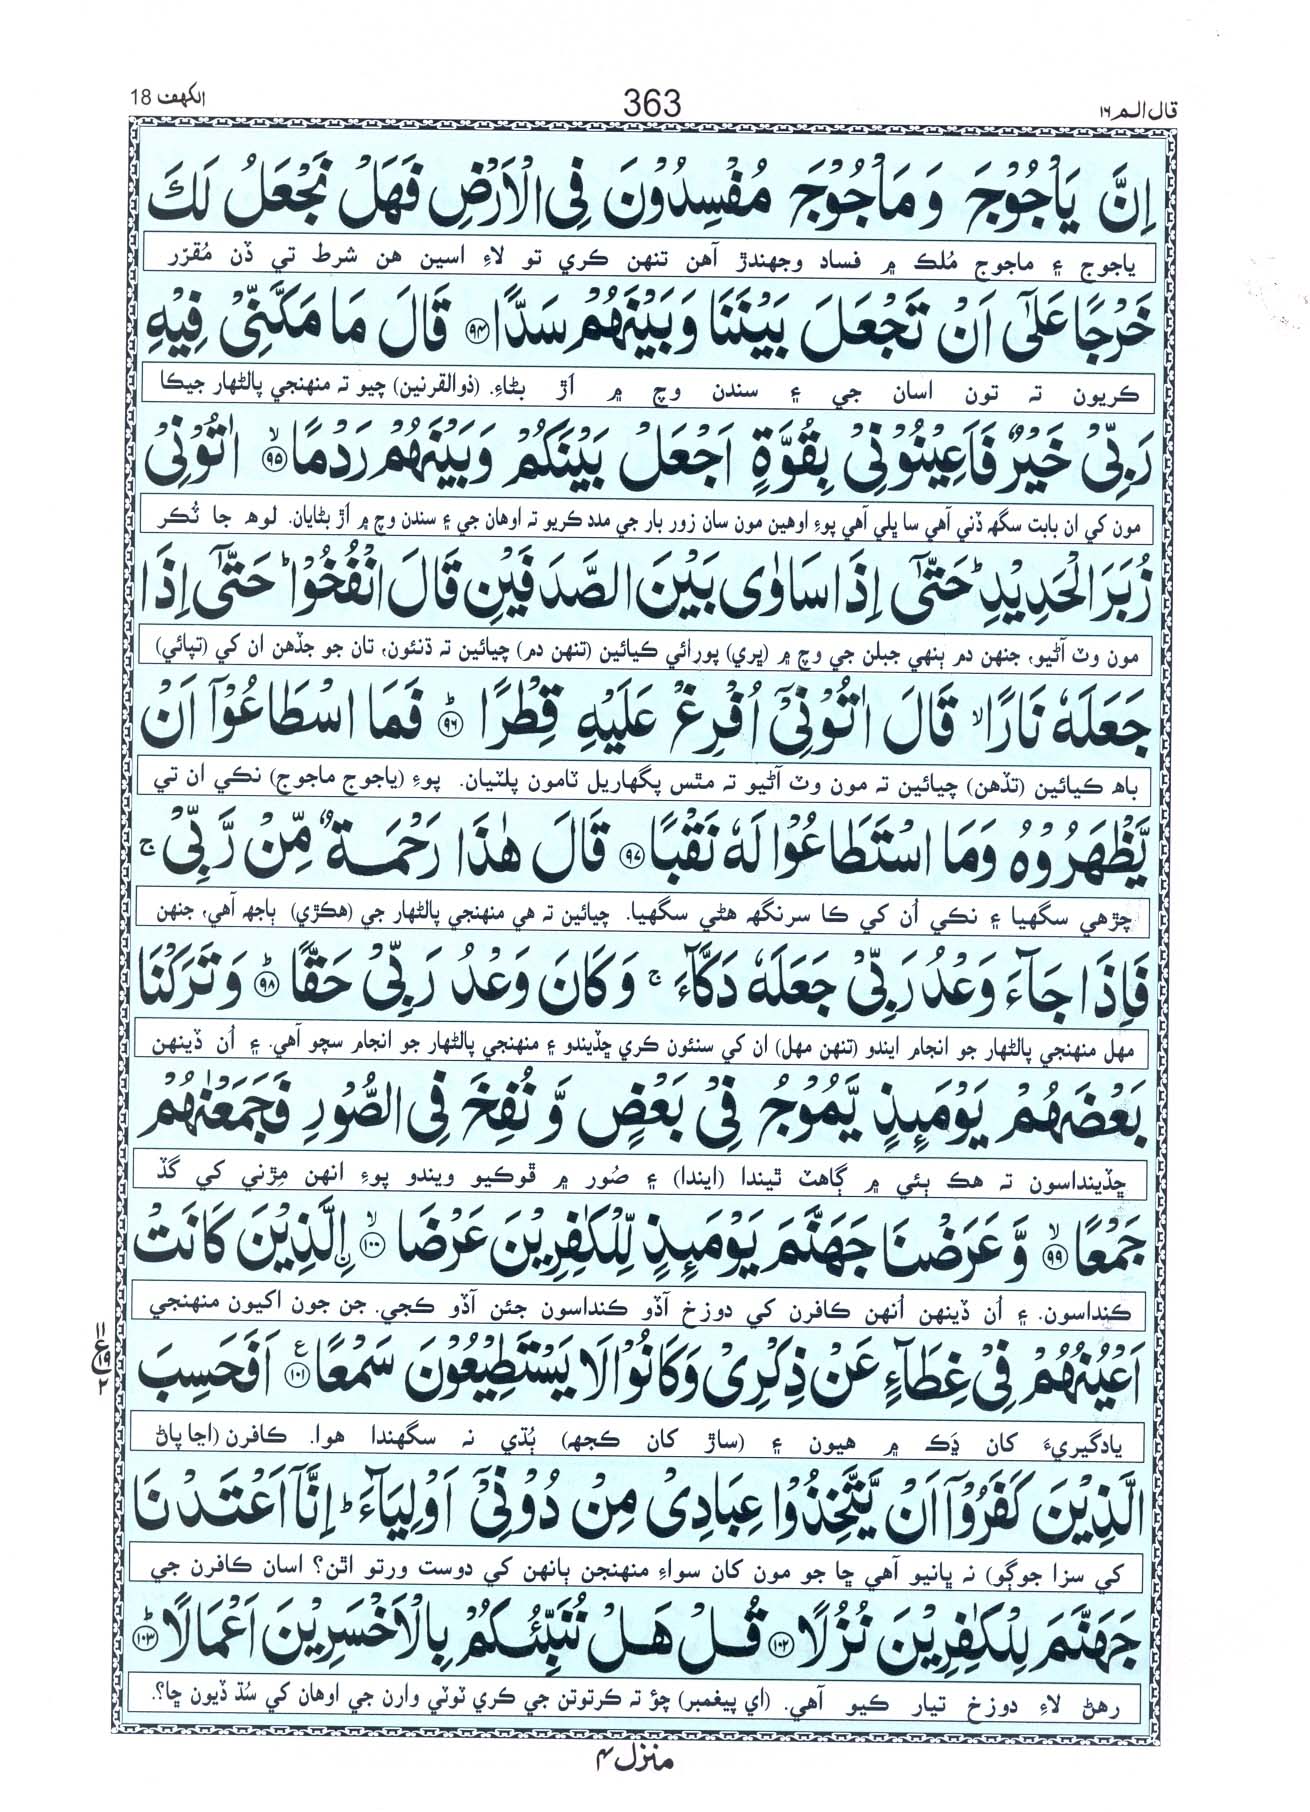 قال الم ١٦
363
الكهف 18
اِنَّ يَاْجُوْجَ وَ مَاْجُوْجَ مُفْسِدُوْنَ فِي الْاَرْضِ فَهَلْ نَجْعَلُ لَكَ
ياجوج ۽ ماجوج مُلڪ ۾ فساد وجهندڙ آهن تنهن ڪري تو لاءِ اسين هن شرط تي ڏن مُقرّر
خَرْجًا عَلٰٓى اَنْ تَجْعَلَ بَيْنَنَا وَبَيْنَهُمْ سَدًّا ۹۴ قَالَ مَا مَكَّنِّيْ فِيْهِ
ڪريون تہ تون اسان جي ۽ سندن وچ ۾ اَڙ بڻاءِ. (ذوالقرنين) چيو تہ منهنجي پالڻهار جيڪا
رَبِّيْ خَيْرٌ فَاَعِيْنُوْنِيْ بِقُوَّةٍ اَجْعَلْ بَيْنَكُمْ وَبَيْنَهُمْ رَدْمًا ۙ ۹۵ اٰتُوْنِيْ
مون کي ان بابت سگهہ ڏني آهي سا ڀلي آهي پوءِ اوهين مون سان زور بار جي مدد ڪريو تہ اوهان جي ۽ سندن وچ ۾ اَڙ بڻايان. لوهہ جا ٽُڪر
زُبَرَ الْحَدِيْدِ ؕ حَتّٰٓى اِذَا سَاوٰى بَيْنَ الصَّدَفَيْنِ قَالَ انْفُخُوْا ؕ حَتّٰٓى اِذَا
مون وٽ آڻيو، جنهن دم ٻنهي جبلن جي وچ ۾ (ڀري) پورائي ڪيائين (تنهن دم) چيائين تہ ڌنئون، تان جو جڏهن ان کي (تپائي)
جَعَلَهٗ نَارًا ۙ قَالَ اٰتُوْنِيْٓ اُفْرِغْ عَلَيْهِ قِطْرًا ؕ ۹۶ فَمَا اسْطَاعُوْٓا اَنْ
باهہ ڪيائين (تڏهن) چيائين تہ مون وٽ آڻيو تہ مٿس پگهاريل ٽامون پلٽيان. پوءِ (ياجوج ماجوج) نڪي ان تي
يَّظْهَرُوْهُ وَمَا اسْتَطَاعُوْا لَهٗ نَقْبًا ۹۷ قَالَ هٰذَا رَحْمَةٌ مِّنْ رَّبِّيْ ۚ
چڙهي سگهيا ۽ نڪي اُن کي ڪا سرنگهہ هڻي سگهيا. چيائين تہ هي منهنجي پالڻهار جي (هڪڙي) ٻاجهہ آهي، جنهن
فَاِذَا جَآءَ وَعْدُ رَبِّيْ جَعَلَهٗ دَكَّآءَ ۚ وَكَانَ وَعْدُ رَبِّيْ حَقًّا ؕ ۹۸ وَتَرَكْنَا
مهل منهنجي پالڻهار جو انجام ايندو (تنهن مهل) ان کي سنئون ڪري ڇڏيندو ۽ منهنجي پالڻهار جو انجام سچو آهي. ۽ اُن ڏينهن
بَعْضَهُمْ يَوْمَىِٕذٍ يَّمُوْجُ فِيْ بَعْضٍ وَّ نُفِخَ فِي الصُّوْرِ فَجَمَعْنٰهُمْ
ڇڏينداسون تہ هڪ ٻئي ۾ ڳاهٽ ٿيندا (ايندا) ۽ صُور ۾ ڦوڪيو ويندو پوءِ انهن مِڙني کي گڏ
جَمْعًا ۙ ۹۹ وَّ عَرَضْنَا جَهَنَّمَ يَوْمَىِٕذٍ لِّلْكٰفِرِيْنَ عَرْضَا ۙ ۱۰۰ اِلَّذِيْنَ كَانَتْ
ڪنداسون. ۽ اُن ڏينهن اُنهن ڪافرن کي دوزخ آڏو ڪنداسون جئن آڏو ڪجي. جن جون اکيون منهنجي
اَعْيُنُهُمْ فِيْ غِطَآءٍ عَنْ ذِكْرِيْ وَكَانُوْا لَا يَسْتَطِيْعُوْنَ سَمْعًا ۱۰۱ اَفَحَسِبَ
يادگيريءَ کان ڍَڪ ۾ هيون ۽ (ساڙ کان ڪجهہ) ٻُڌي نہ سگهندا هوا. ڪافرن (اڃا پاڻ
الَّذِيْنَ كَفَرُوْٓا اَنْ يَّتَّخِذُوْا عِبَادِيْ مِنْ دُوْنِيْٓ اَوْلِيَآءَ ؕ اِنَّآ اَعْتَدْنَا
کي سزا جوڳو) نہ ڀانيو آهي ڇا جو مون کان سواءِ منهنجن ٻانهن کي دوست ورتو اٿن؟ اسان ڪافرن جي
جَهَنَّمَ لِلْكٰفِرِيْنَ نُزُلًا ۱۰۲ قُلْ هَلْ نُنَبِّئُكُمْ بِالْاَخْسَرِيْنَ اَعْمَالًا ؕ ۱۰۳
رهڻ لاءِ دوزخ تيار ڪيو آهي. (اي پيغمبر) چؤ تہ ڪرتوتن جي ڪري ٽوٽي وارن جي اوهان کي سُڌ ڏيون ڇا؟.
منزل ۴